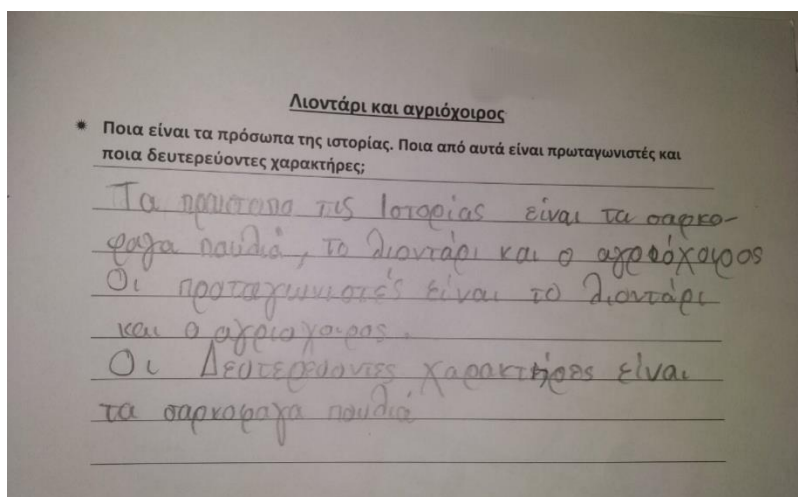 Λιοντάρι και αγριόχοιρος
* Ποια είναι τα πρόσωπα της ιστορίας. Ποια από αυτά είναι πρωταγωνιστές και
ποια δευτερεύοντες χαρακτήρες;
Τα τις Ιστορίας είναι τα σαρκο-
φαγα πουλιά, το λιοντάρι και ο αγριόχοιρος
Οι προταγωνιστές είναι το λιοντάρι
και ο αγριοχοιρος.
Οι Δευτερεύοντες χαρακτήρες είναι
τα σαρκοφαγα πουλιά